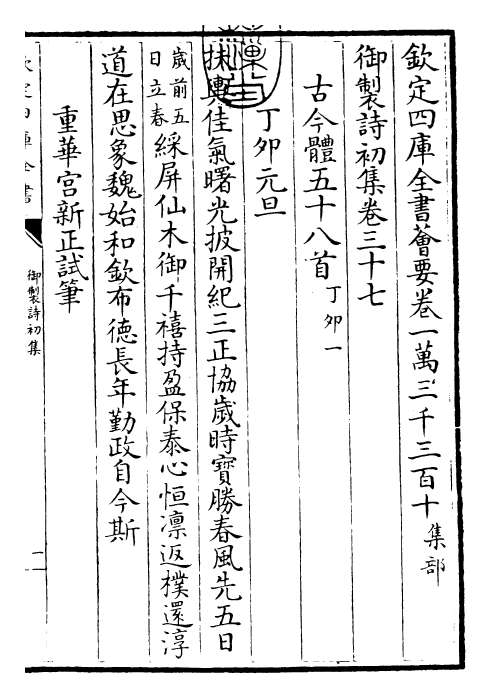 欽定四庫全書薈要卷一萬三千三百十 集部
御製詩初集卷三十七
古今體五十八首 丁卯一
丁卯元旦
扶輿佳氣曙光披開紀三正協歲時寶勝春風先五日
歲前五日立春 綵屏仙木御千禧持盈保泰心恒凛返樸還淳
道在思象魏始和欽布德長年勤政自今斯
重華宫新正試筆
欽定四庫全書
御製詩初集
一